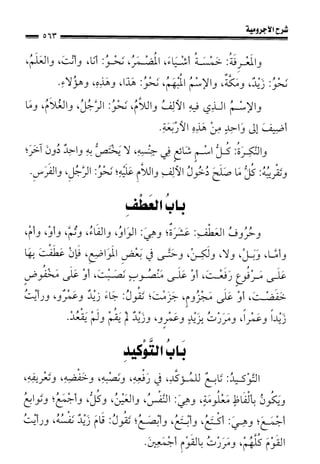 شرح الآجرومية
٥٦٣
وَالْمَعْرِفَةُ: خَمْسَةُ أَشْيَاءَ، الْمُضْمَرُ، نَحْوُ: أَنَا، وَأَنْتَ، وَالعَلَمُ،
نَحْوُ: زَيْدٌ، وَمَكَّةُ، وَالإِسْمُ الْمُبْهَمُ، نَحْوُ: هَذَا، وَهَذِهِ، وَهَؤُلاءِ.
وَالإِسْمُ الَّذِي فِيهِ الأَلِفُ وَاللَّامُ، نَحْوُ: الرَّجُلُ، وَالغُلَامُ، وَمَا
أُضِيفَ إِلَى وَاحِدٍ مِنْ هَذِهِ الأَرْبَعَةِ.
وَالنَّكِرَةُ: كُلُّ اسْمٍ شَائِعٍ فِي جِنْسِهِ، لَا يَخْتَصُّ بِهِ وَاحِدٌ دُونَ آخَرَ؛
وَتَقْرِيبُهُ: كُلُّ مَا صَلَحَ دُخُولُ الأَلِفِ وَاللَّامِ عَلَيْهِ؛ نَحْوُ: الرَّجُلِ، وَالفَرَسِ.
بَابُ العَطْفِ
وَحُرُوفُ العَطْفِ: عَشَرَةٌ؛ وَهِيَ: الوَاوُ، وَالفَاءُ، وَثُمَّ، وَأَوْ، وَأَمْ،
وَإِمَّا، وَبَلْ، وَلَا، وَلَكِنْ، وَحَتَّى فِي بَعْضِ المَوَاضِعِ، فَإِنْ عَطَفْتَ بِهَا
عَلَى مَرْفُوعٍ رَفَعْتَ، أَوْ عَلَى مَنْصُوبٍ نَصَبْتَ، أَوْ عَلَى مَخْفُوضٍ
خَفَضْتَ، أَوْ عَلَى مَجْزُومٍ، جَزَمْتَ؛ تَقُولُ: جَاءَ زَيْدٌ وَعَمْرٌو، وَرَأَيْتُ
زَيْداً وَعَمْراً، وَمَرَرْتُ بِزَيْدٍ وَعَمْرٍو، وَزَيْدٌ لَمْ يَقُمْ وَلَمْ يَقْعُدْ.
بَابُ التَّوْكِيدِ
التَّوْكِيدُ: تَابِعٌ لِلْمُؤَكَّدِ، فِي رَفْعِهِ، وَنَصْبِهِ، وَخَفْضِهِ، وَتَعْرِيفِهِ،
وَيَكُونُ بِأَلْفَاظٍ مَعْلُومَةٍ، وَهِيَ: النَّفْسُ، وَالعَيْنُ، وَكُلُّ، وَأَجْمَعُ؛ وَتَوَابِعُ
أَجْمَعَ؛ وَهِيَ: أَكْتَعُ، وَأَبْتَعُ، وَأَبْصَعُ؛ تَقُولُ: قَامَ زَيْدٌ نَفْسُهُ، وَرَأَيْتُ
القَوْمَ كُلَّهُمْ، وَمَرَرْتُ بِالقَوْمِ أَجْمَعِينَ.